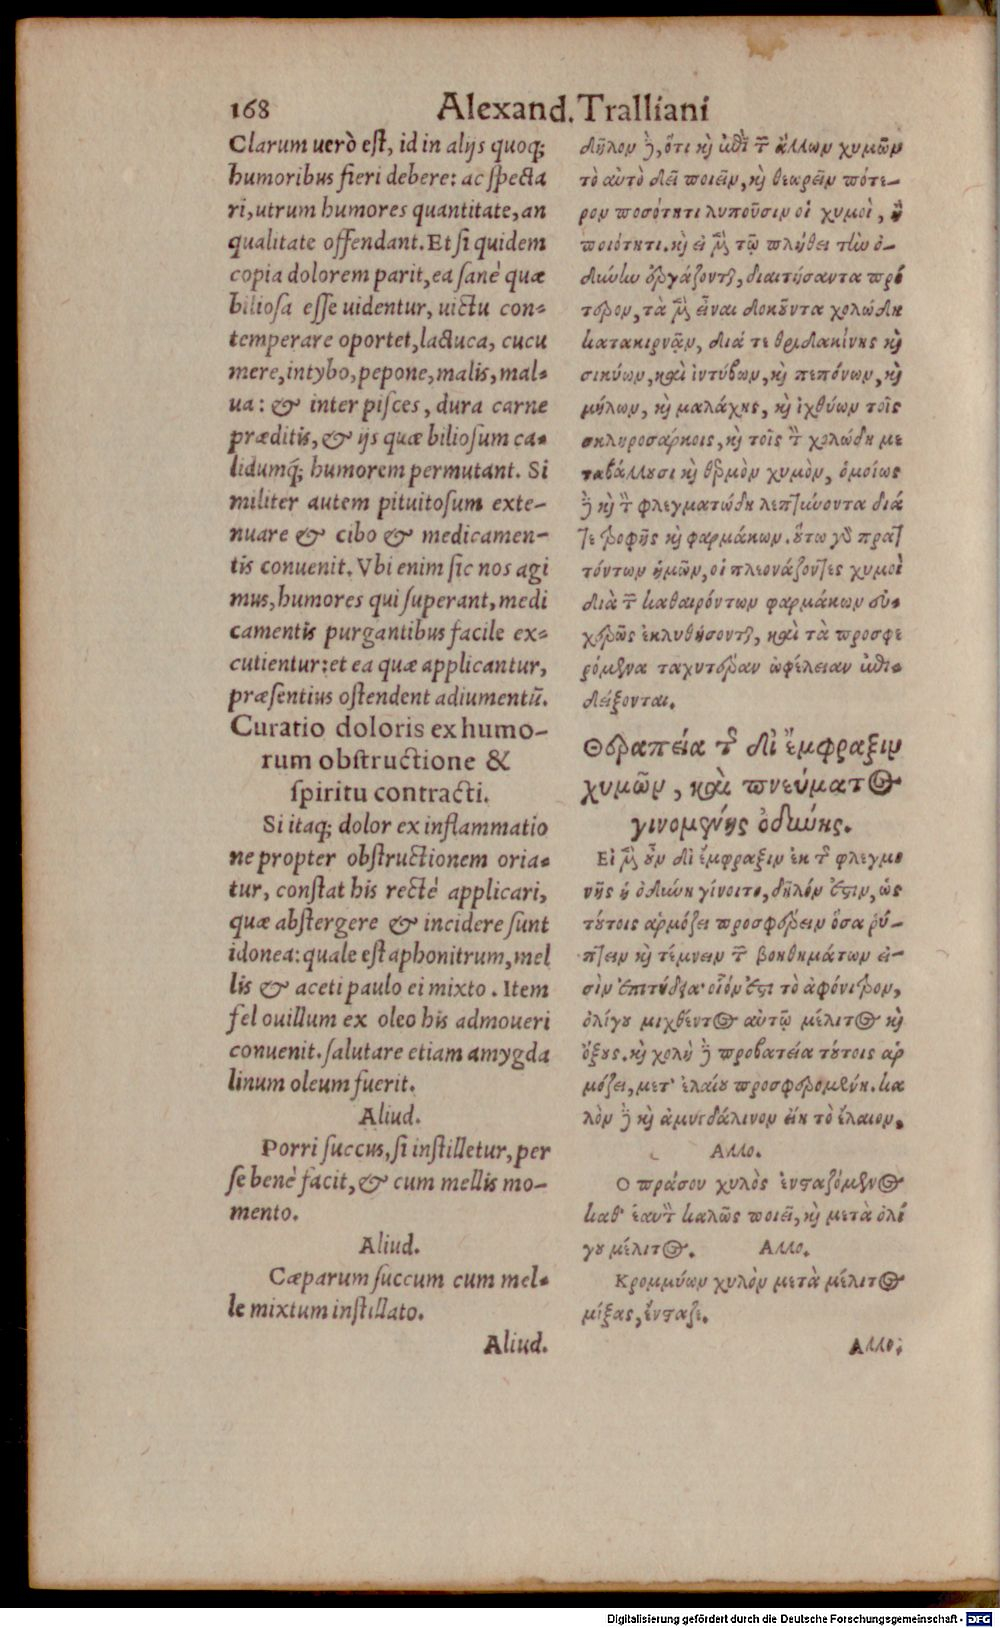 168 Alexand. Tralliani
Clarum uerò est, id in alijs quoq;
humoribus fieri debere: ac specta
ri, utrum humores quantitate, an
qualitate offendant. Et si quidem
copia dolorem parit, ea sanè quæ
biliosa esse uidentur, uictu con-
temperare oportet, lactuca, cucu
mere, intybo, pepone, malis, mal-
ua: & inter pisces, dura carne
præditis, & ijs quæ biliosum ca-
lidumq́; humorem permutant. Si
militer autem pituitosum exte-
nuare & cibo & medicamen-
tis conuenit. Vbi enim sic nos agi
mus, humores qui superant, medi
camentis purgantibus facile ex-
cutientur: et ea quæ applicantur,
præsentius ostendent adiumentū.
Curatio doloris ex humo-
rum obstructione &
spiritu contracti.
Si itaq; dolor ex inflammatio
ne propter obstructionem oria-
tur, constat his rectè applicari,
quæ abstergere & incidere sunt
idonea: quale est aphonitrum, mel
lis & aceti paulo ei mixto. Item
fel ouillum ex oleo his admoueri
conuenit. salutare etiam amygda
linum oleum fuerit.
Aliud.
Porri succus, si instilletur, per
se benè facit, & cum mellis mo-
mento.
Aliud.
Cæparum succum cum mel-
le mixtum instillato.
Aliud.
δῆλον δὲ, ὅτι καὶ ἐπὶ τῶν ἄλλων χυμῶν
τὸ αὐτὸ δεῖ ποιεῖν, καὶ θεωρεῖν πότε-
ρον ποσότητι λυποῦσιν οἱ χυμοὶ, ἢ
ποιότητι. καὶ εἰ μὲν τῷ πλήθει τὴν ὀ-
δύνην ἐργάζονται, διαιτήσαντα πρό
τερον, τὰ μὲν εἶναι δοκοῦντα χολώδη
κατακιρνᾷν, διά τε θριδακίνης καὶ
σικύων, καὶ ἰντύβων, καὶ πεπόνων, καὶ
μήλων, καὶ μαλάχης, καὶ ἰχθύων τοῖς
σκληροσάρκοις, καὶ τοῖς τὸν χολώδη με
ταβάλλουσι καὶ θερμὸν χυμὸν, ὁμοίως
δὲ καὶ τὸν φλεγματώδη λεπτύνοντα διά
τε τροφῆς καὶ φαρμάκων. οὕτω γὰρ πρατ
τόντων ἡμῶν, οἱ πλεονάζοντες χυμοὶ
διὰ τῶν καθαιρόντων φαρμάκων εὐ-
χερῶς ἐκλυθήσονται, καὶ τὰ προσφε
ρόμενα ταχυτέραν ὠφέλειαν ἐπι-
δείξονται.
Θεραπεία τῆς δι' ἔμφραξιν
χυμῶν, καὶ πνεύματος
γινομένης ὀδύνης.
Εἰ μὲν οὖν δι' ἔμφραξιν ἐκ τῆς φλεγμο
νῆς ἡ ὀδύνη γίνοιτο, δῆλόν ἐστιν, ὡς
τούτοις ἁρμόζει προσφέρειν ὅσα ῥύ-
πτειν καὶ τέμνειν τῶν βοηθημάτων εἰ-
σὶν ἐπιτήδεια· οἷόν ἐστι τὸ ἀφόνιτρον,
ὀλίγου μιχθέντος αὐτῷ μέλιτος καὶ
ὄξους. καὶ χολὴ δὲ προβατεία τούτοις ἁρ
μόζει, μετ' ἐλαίου προσφερομένη. κα
λὸν δὲ καὶ ἀμυγδάλινον εἴη τὸ ἔλαιον.
Αλλο.
Ο πράσου χυλὸς ἐνσταζόμενος
καθ' ἑαυτὸν καλῶς ποιεῖ, καὶ μετὰ ὀλί
γου μέλιτος. Αλλο.
Κρομμύων χυλὸν μετὰ μέλιτος
μίξας, ἔνσταζε.
Αλλο.
Digitalisierung gefördert durch die Deutsche Forschungsgemeinschaft - DFG